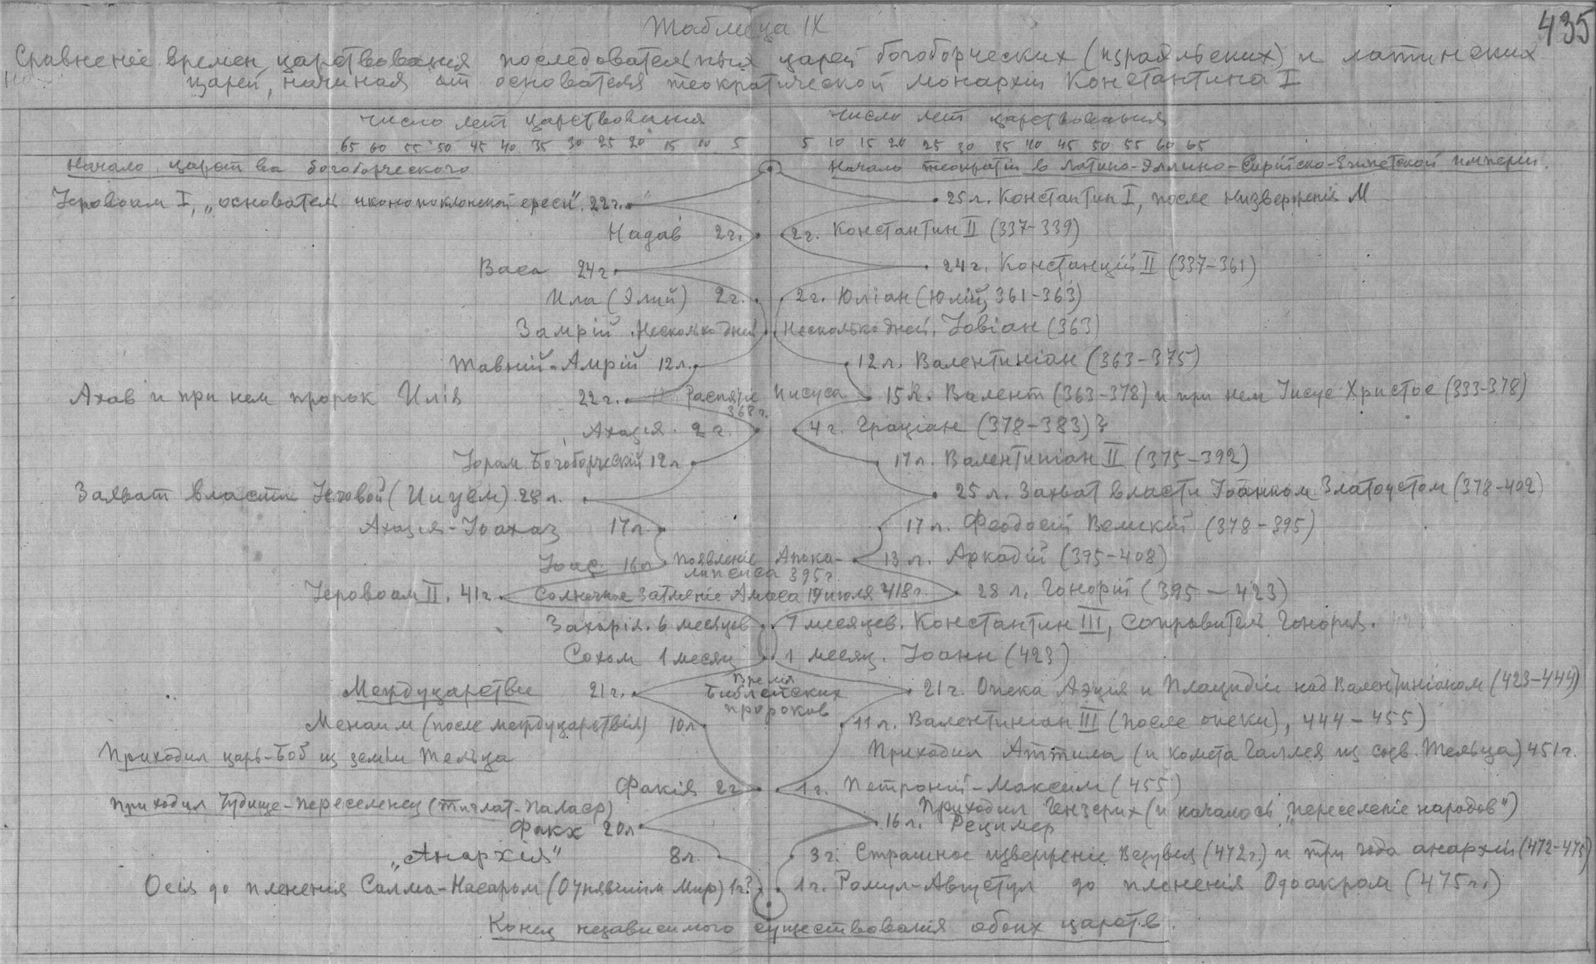 435
Таблица IX
Сравненіе времен царствованія последовательных царей богоборческих (израильских) и латинских
царей, начиная от основателя теократической монархіи Константина I
Число лет царствованія Число лет царствованія
65 60 55 50 45 40 35 30 25 20 15 10 5 5 10 15 20 25 30 35 40 45 50 55 60 65
Начало царства богоборческого Начало теократіи в Латино-Эллино-Сирійско-Египетской имперіи.
Іеровоам I, „основатель иконопоклонской ереси“. 22 г. 25 л. Константин I, после низверженія М
Надав 2 г. 2 г. Константин II (337-339)
Васа 24 г. 24 г. Констанцій II (337-361)
Ила (Элий) 2 г. 2 г. Юліан (Юлій, 361-363)
Замрій. Несколько дней Несколько дней. Іовіан (363)
Тавній-Амрій 12 л. 12 л. Валентиніан (363-375)
Ахав и при нем пророк Илія 22 г. Распятіе Іисуса 15 л. Валент (363-378) и при нем Іисус Христос (333-378)
368 г.
Ахазія. 2 г. 4 г. Граціан (378-383)?
Іорам Богоборческій 12 л. 17 л. Валентиніан II (375-392)
Захват власти Іеговой (Ииуем) 28 л. 25 л. Захват власти Іоанном Златоустом (378-402)
Ахазія-Іоахаз 17 л. 17 л. Феодосій Великій (378-395)
Іоас 16 л. Появленіе Апока- 13 л. Аркадій (395-408)
липсиса 395 г.
Іеровоам II. 41 г. Солнечное затменіе Амоса 19 июля 418 г. 28 л. Гонорій (395-423)
Захарія. 6 месяцев 7 месяцев. Константин III, соправитель Гонорія.
Сохом 1 месяц 1 месяц. Іоанн (423)
Междуцарствие 21 г. Время 21 г. Опека Аэція и Плацидіи над Валентиніаном (423-444)
библейских
пророков
Менаим (после междуцарствія) 10 л. 11 л. Валентиніан III (после опеки), 444-455)
Приходил царь-Боб из земли Тельца Приходил Аттила (и комета Галлея из созв. Тельца) 451 г.
Факія 2 г. 1 г. Петроній-Максим (455)
Приходил Чудище-переселенец (Тиглат-Паласэр) Приходил Гензерих (и началось „переселеніе народов“)
Факх 20 л. 16 л. Рецимер
„Анархія“ 8 л. 3 г. Страшное изверженіе Везувія (472 г.) и три года анархіи (472-475)
Осія до плененія Салма-Насаром (Отнявшим Мир) 1 г? 1 г. Ромул-Августул до плененія Одоакром (475 г.)
Конец независимого существованія обоих царств.